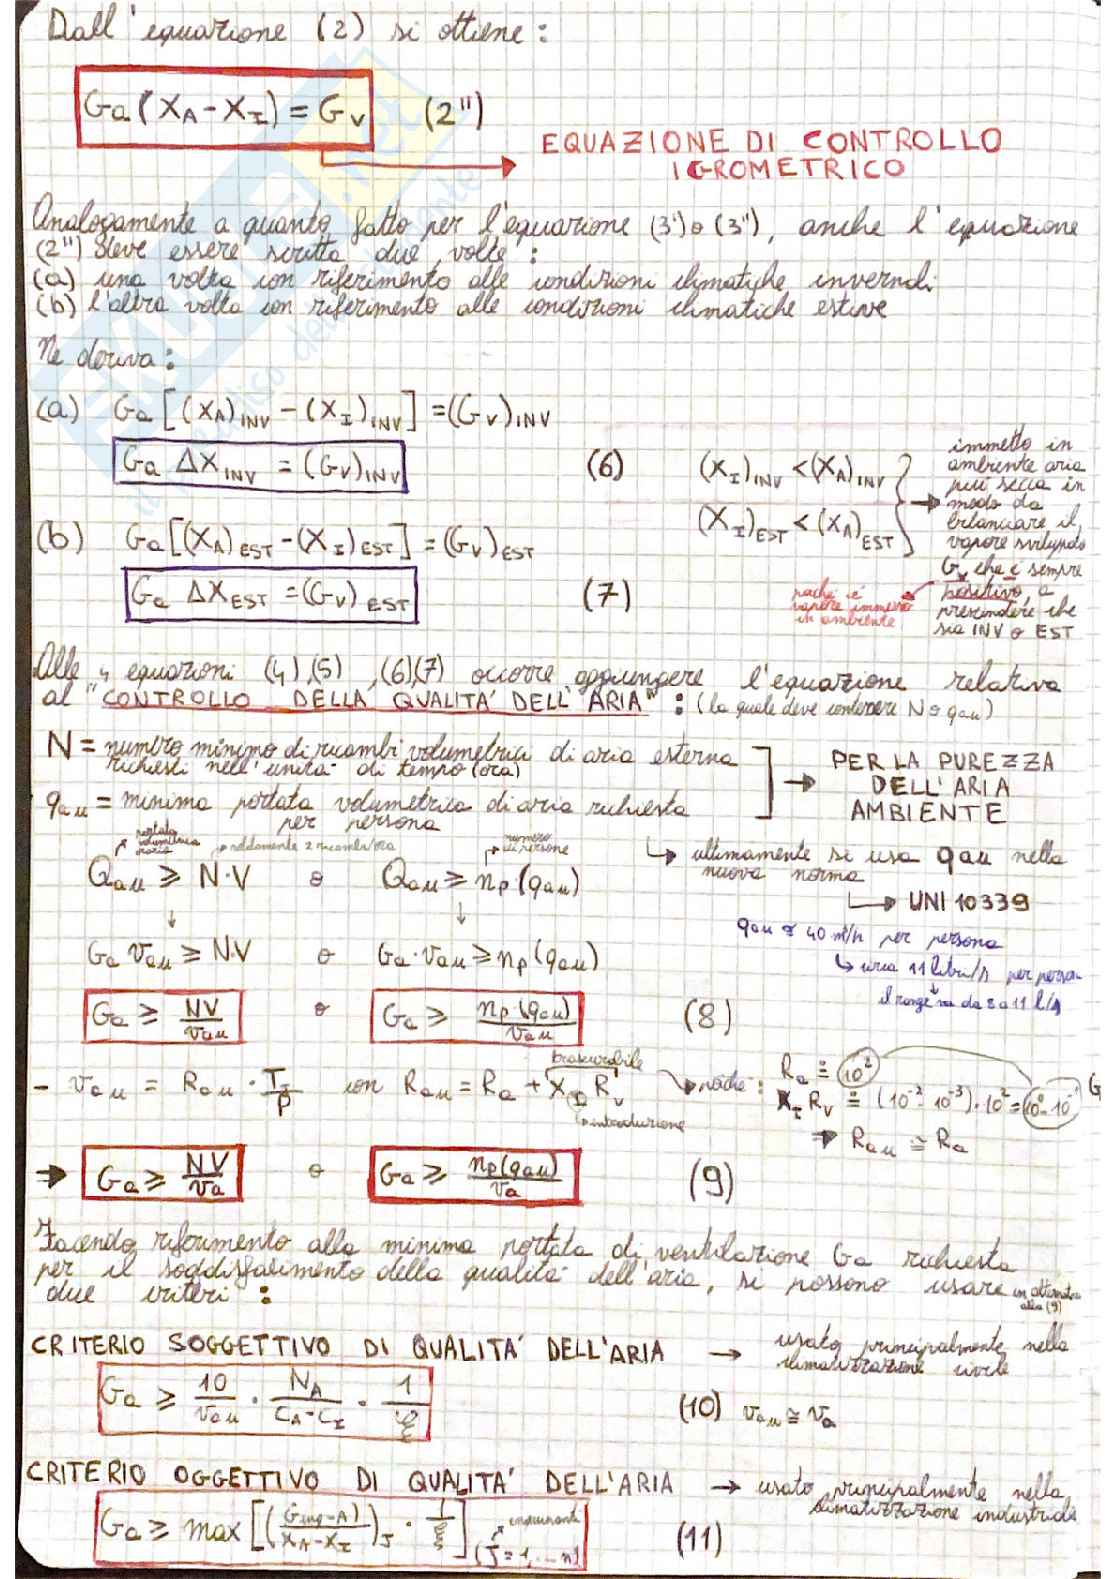 Dall'equazione (2) si ottiene:
Ga(XA-XI) = GV (2'')
EQUAZIONE DI CONTROLLO
IGROMETRICO
Analogamente a quanto fatto per l'equazione (3') o (3''), anche l'equazione
(2'') deve essere scritta due volte:
(a) una volta con riferimento alle condizioni climatiche invernali
(b) l'altra volta con riferimento alle condizioni climatiche estive
Ne deriva:
(a) Ga[(XA)INV - (XI)INV] = (GV)INV
Ga ΔXINV = (GV)INV (6)
(b) Ga[(XA)EST - (XI)EST] = (GV)EST
Ga ΔXEST = (GV)EST (7)
(XI)INV < (XA)INV
(XI)EST < (XA)EST
immetto in
ambiente aria
più secca in
modo da
bilanciare il
vapore sviluppato
GV che è sempre
positivo, a
prescindere che
sia INV o EST
poiché è
vapore immesso
in ambiente
Alle 4 equazioni (4),(5),(6),(7) occorre aggiungere l'equazione relativa
al "CONTROLLO DELLA QUALITA' DELL'ARIA": (la quale deve contenere N o qau)
N = numero minimo di ricambi volumetrici di aria esterna
richiesti nell'unità di tempo (ora)
qau = minima portata volumetrica di aria richiesta
per persona
→ PER LA PUREZZA
DELL'ARIA
AMBIENTE
↳ ultimamente si usa qau nella
nuova norma
↳ UNI 10339
qau ≅ 40 m³/h per persona
↳ circa 11 litri/s per persona
il range va da 8 a 11 l/s
portata
volumetrica
oraria
solitamente 2 ricambi/ora
numero
di persone
Qau ≥ N·V o Qau ≥ np(qau)
↓ ↓
Ga vau ≥ NV o Ga·vau ≥ np(qau)
Ga ≥ NV/vau o Ga ≥ np·(qau)/vau (8)
- vau = Rau · TI/P con Rau = Ra + XI RV
trascurabile
introduzione
→ poiché: Ra ≅ 10²
XI RV ≅ (10⁻² 10⁻³)·10² = 10⁰-10⁻¹
⇒ Rau ≅ Ra
⇒ Ga ≥ NV/va o Ga ≥ np(qau)/va (9)
Facendo riferimento alla minima portata di ventilazione Ga richiesta
per il soddisfacimento della qualità dell'aria, si possono usare in alternativa
alla (9)
due criteri:
CRITERIO SOGGETTIVO DI QUALITA' DELL'ARIA → usato principalmente nella
climatizzazione civile
Ga ≥ 10/vau · NA/(CA-CI) · 1/ξ (10) vau ≅ va
CRITERIO OGGETTIVO DI QUALITA' DELL'ARIA → usato principalmente nella
climatizzazione industriale
Ga ≥ max[((Ginq-A)/(XA-XI))J · 1/ξ] (J=1,...n) (11)
inquinante